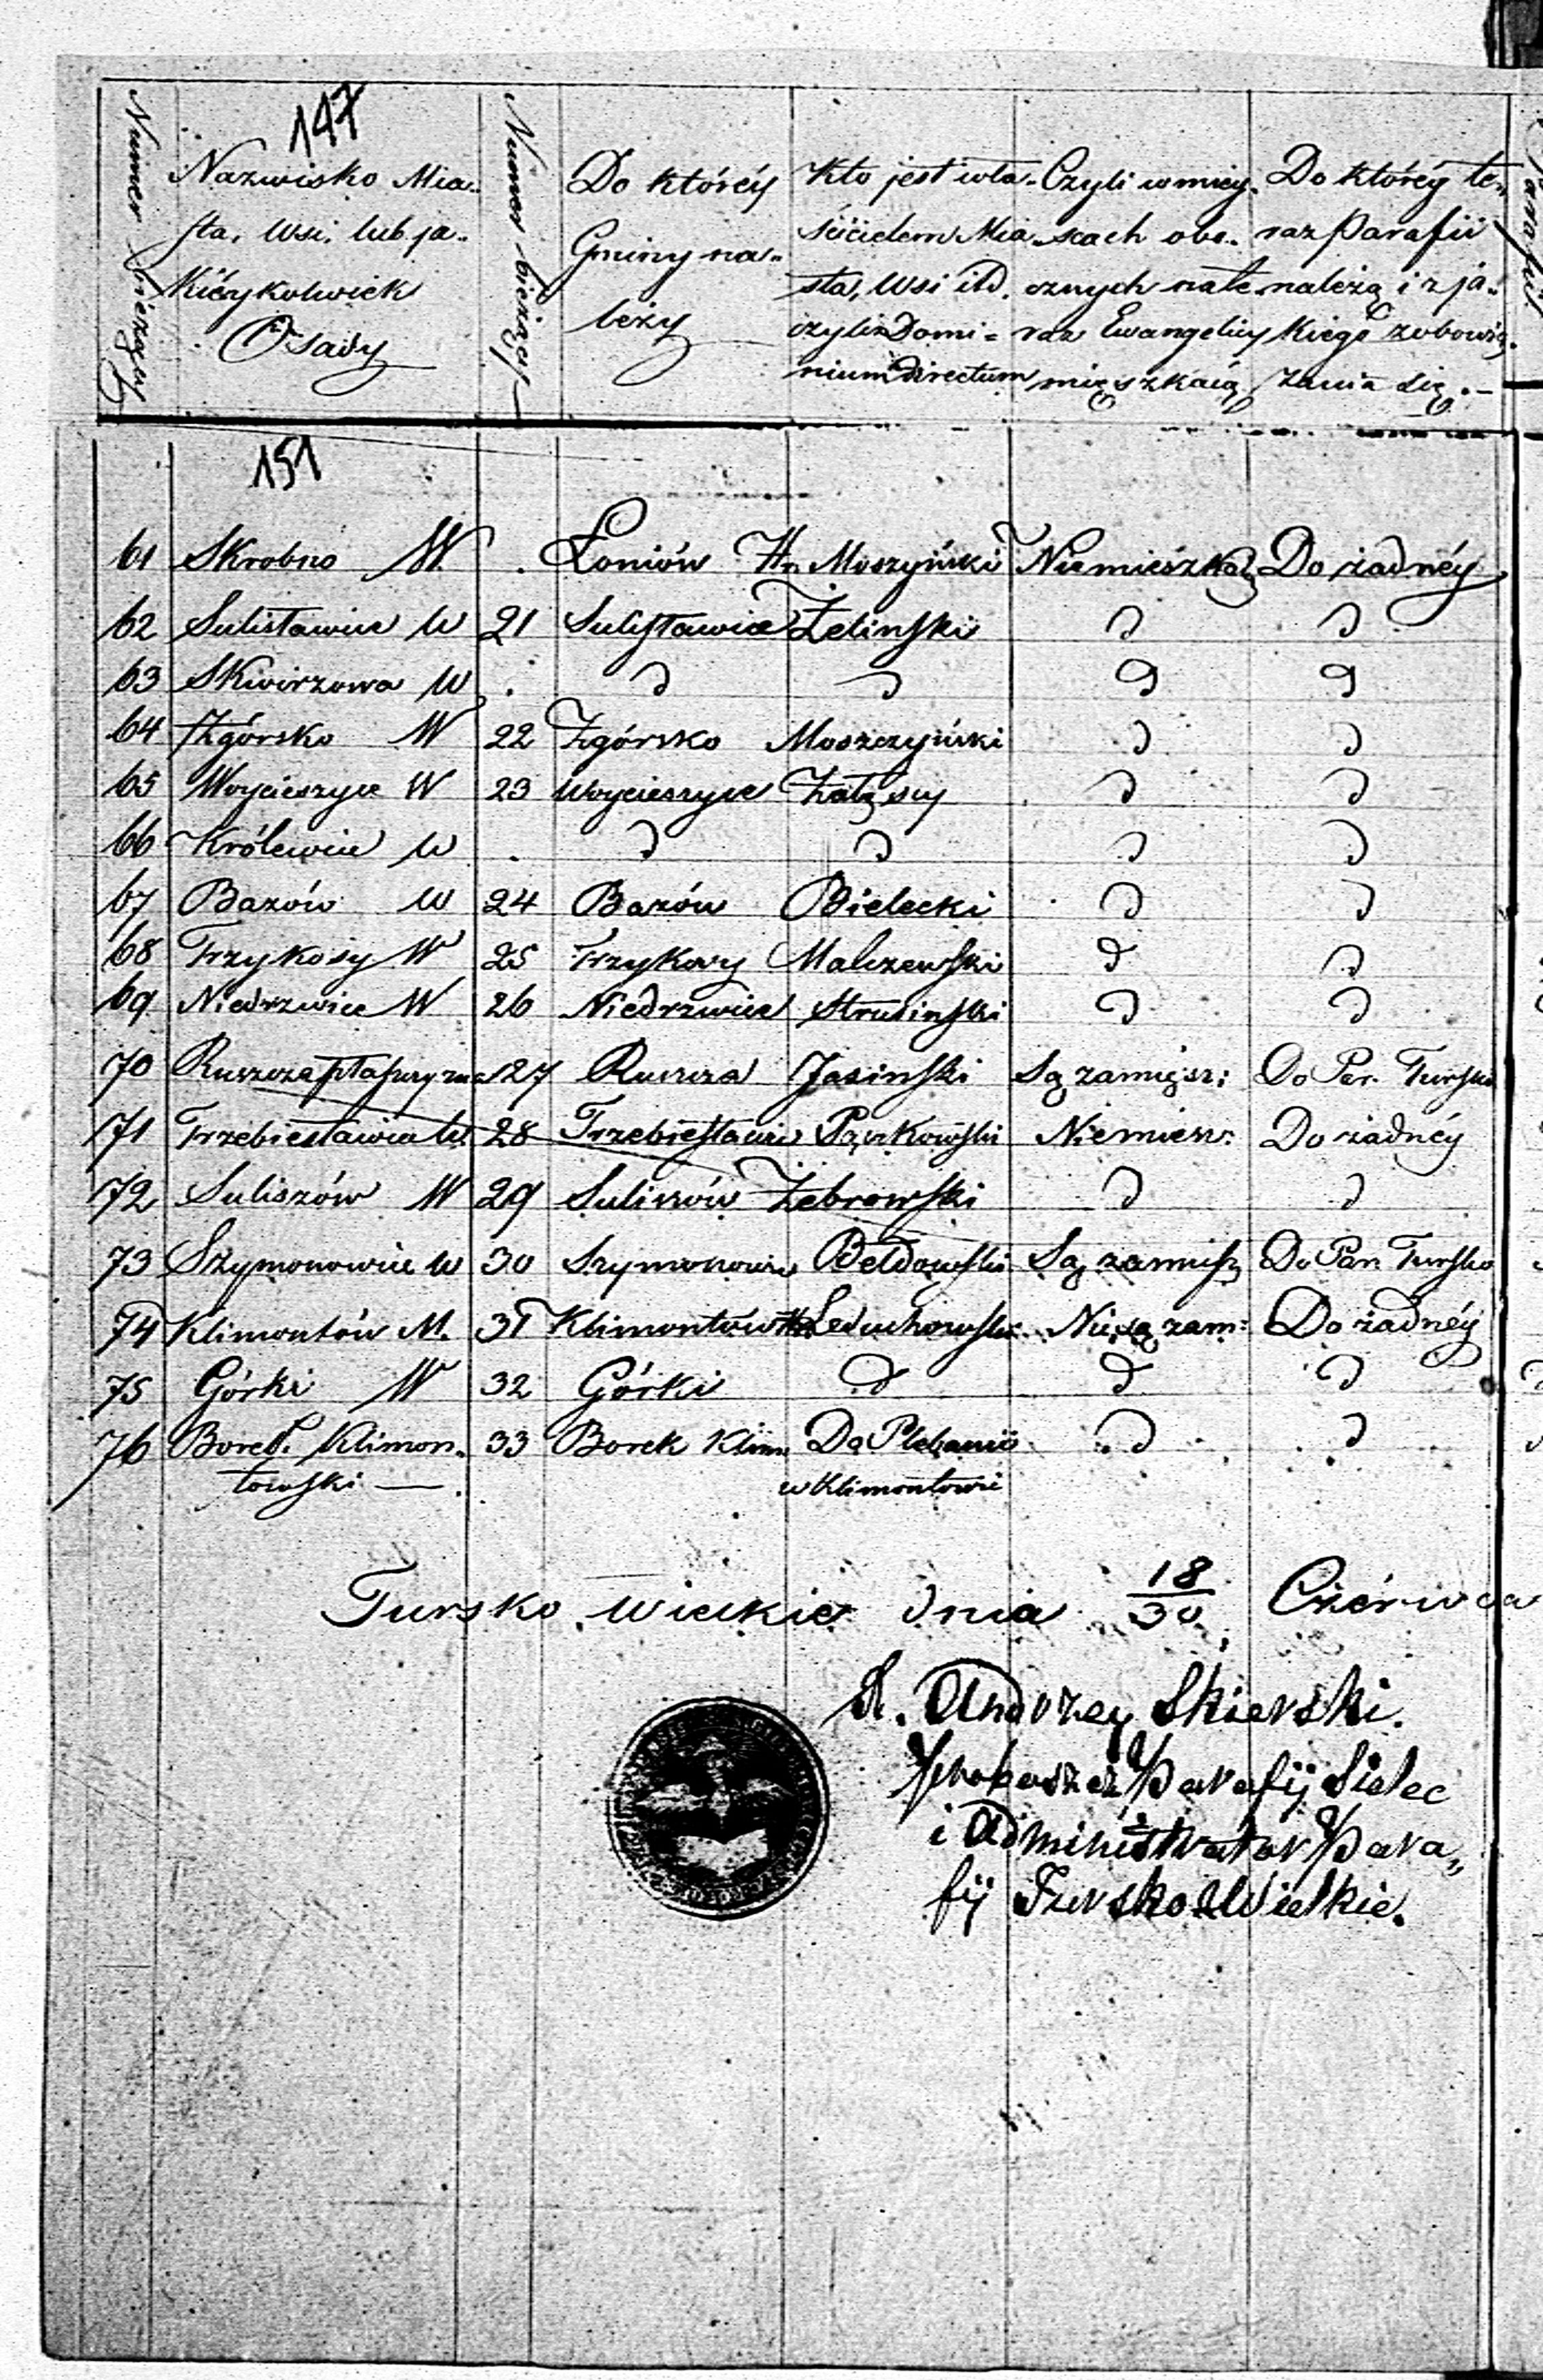 147
Numer bieżący
Nazwisko Mia-
sta, Wsi, lub ja-
kiéykolwiek
Osady
Numer bieżący
Do któréy
Gminy na-
leży
Kto jest wła-
ścicielem Mia-
sta, Wsi itd.
czyli Domi-
nium directum
Czyli w miey-
scach obo-
cznych
raz Ewangelicy
mieszkaią
Do któréy te-
raz Parafii
należą i z ja-
kiego zobowią-
zania się.
151
61 Skrobno W . Łoniów Hr. Moszyński Niemieszkaią Do żadnéy
62 Sulisławice W 21 Sulisławice Zeliński d d
63 Skwirzowa W . d d d d
64 Zgórsko W 22 Zgórsko Moszczyński d d
65 Woycieszyce W 23 Woycieszyce Załęscy d d
66 Królewice W . d d d d
67 Bazów W 24 Bazów Bielecki d d
68 Trzykosy W 25 Trzykosy Malczewski d d
69 Niedrzwice W 26 Niedrzwice Strusiński d d
70 Ruszcza 27 Ruszcza Jasinski Są zamiesz: Do Par. Tursko
71 Trzebiesławice W 28 Trzebiesławice Niemiesz: Do żadnéy
72 Suliszów W 29 Suliszów Żebrowski d d
73 Szymonowice W 30 Szymonowice Bełdowski Są zamiesz Do Par. Tursko
74 Klimontów M. 31 Klimontów Hr. Leduchowski Nie są zam: Do żadnéy
75 Górki W 32 Górki d d d
76 Borek Klimon- 33 Borek Klim. Do Plebanii d d
towski — w Klimontowie
Tursko Wielkie dnia 18/30 Czérwca
X. Andrzey Skierski.
Proboszcz Parafij Sielec
i Administrator Para-
fij Tursko Wielkie.